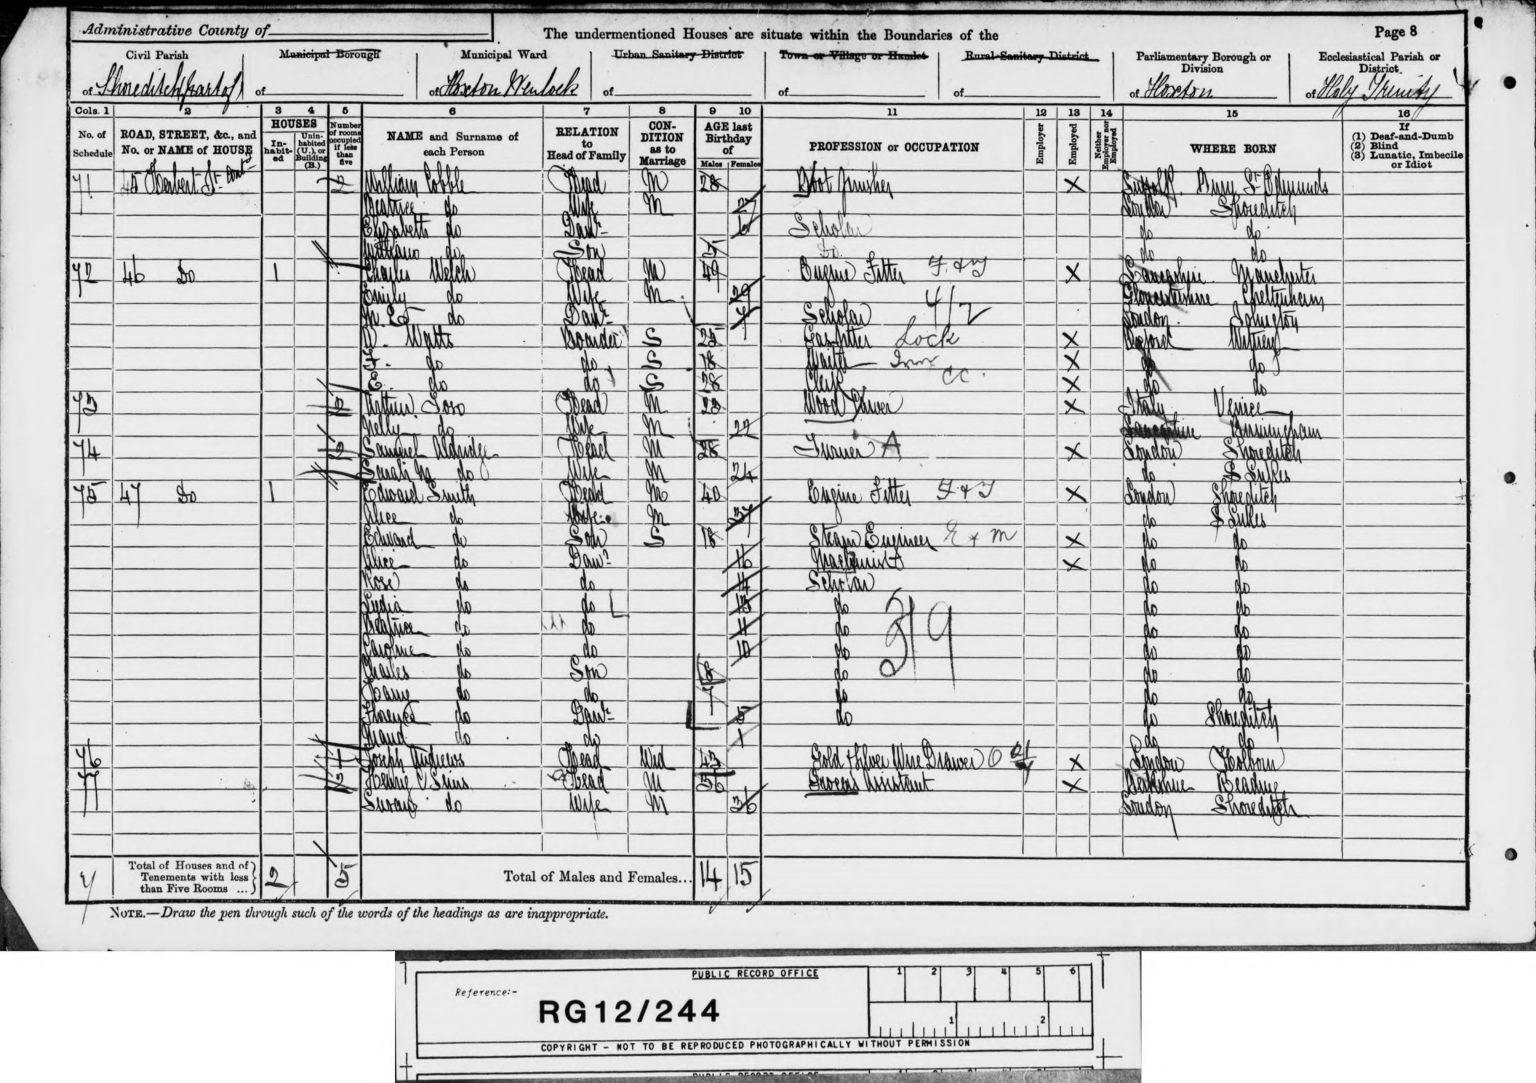 Administrative County of
The undermentioned Houses are situate within the Boundaries of the
Page 8
Civil Parish Municipal Borough Municipal Ward Urban Sanitary District Town or Village or Hamlet Rural Sanitary District Parliamentary Borough or Division Ecclesiastical Parish or District
of Shoreditch (part of) of of Hoxton Wenlock of of of of Hoxton of Holy Trinity
Cols. 1 2 3 4 5 6 7 8 9 10 11 12 13 14 15 16
No. of Schedule ROAD, STREET, &c., and No. or NAME of HOUSE HOUSES Inhabited Uninhabited (U.), or Building (B.) Number of rooms occupied if less than five NAME and Surname of each Person RELATION to Head of Family CONDITION as to Marriage AGE last Birthday of Males Females PROFESSION or OCCUPATION Employer Employed Neither Employer nor Employed WHERE BORN If (1) Deaf-and-Dumb (2) Blind (3) Lunatic, Imbecile or Idiot
71 45 Herbert St Contd William Cobble Head M 28 Boot Finisher X Suffolk Bury St Edmunds
Beatrice do Wife M 27 London Shoreditch
Elizabeth do Daur 6 Scholar do do
William do Son 5 Do do do
72 46 Do 1 Charles Welch Head M 49 Engine Fitter F & T X Lancashire Manchester
Emily do Wife M 29 Gloucestershire Cheltenham
do Daur Scholar 4/2 London Islington
W. Watts Boarder S 25 Gasfitter Lock X Oxford Witney
F. do do S 18 Waiter Inn X do do
E. do do S 28 Clerk CC. X do do
73 Head M 23 Wood X Italy Venice
Nelly do Wife M 22 Birmingham
74 2 Samuel Aldridge Head M 28 Turner A X London Shoreditch
Sarah do Wife M 24 do St Lukes
75 47 Do 1 Edward Smith Head M 40 Engine Fitter F & T X London Shoreditch
Alice do Wife M 37 do St Lukes
Edward do Son S 18 Steam Engineer E & M X do do
Alice do Daur 16 Machinist X do do
Rose do do Scholar do do
Lydia do do 13 do do do
Beatrice do do 11 do do do
Caroline do do 10 do do do
Charles do Son 8 do do do
Harry do do 7 do do do
Florence do Daur 5 do do Shoreditch
Maud do do 1 do do
319
76 Joseph Andrews Head Wid 43 Gold & Silver Wire Drawer O X London Holborn
77 Henry C Sims Head M 56 Grocers Assistant X Berkshire Reading
Susan do Wife M 36 London Shoreditch
Total of Houses and of Tenements with less than Five Rooms ... 2 5 Total of Males and Females... 14 15
NOTE.—Draw the pen through such of the words of the headings as are inappropriate.
PUBLIC RECORD OFFICE
1 2 3 4 5 6
Reference:-
RG12/244
1 2
COPYRIGHT - NOT TO BE REPRODUCED PHOTOGRAPHICALLY WITHOUT PERMISSION
PUBLIC RECORD OFFICE